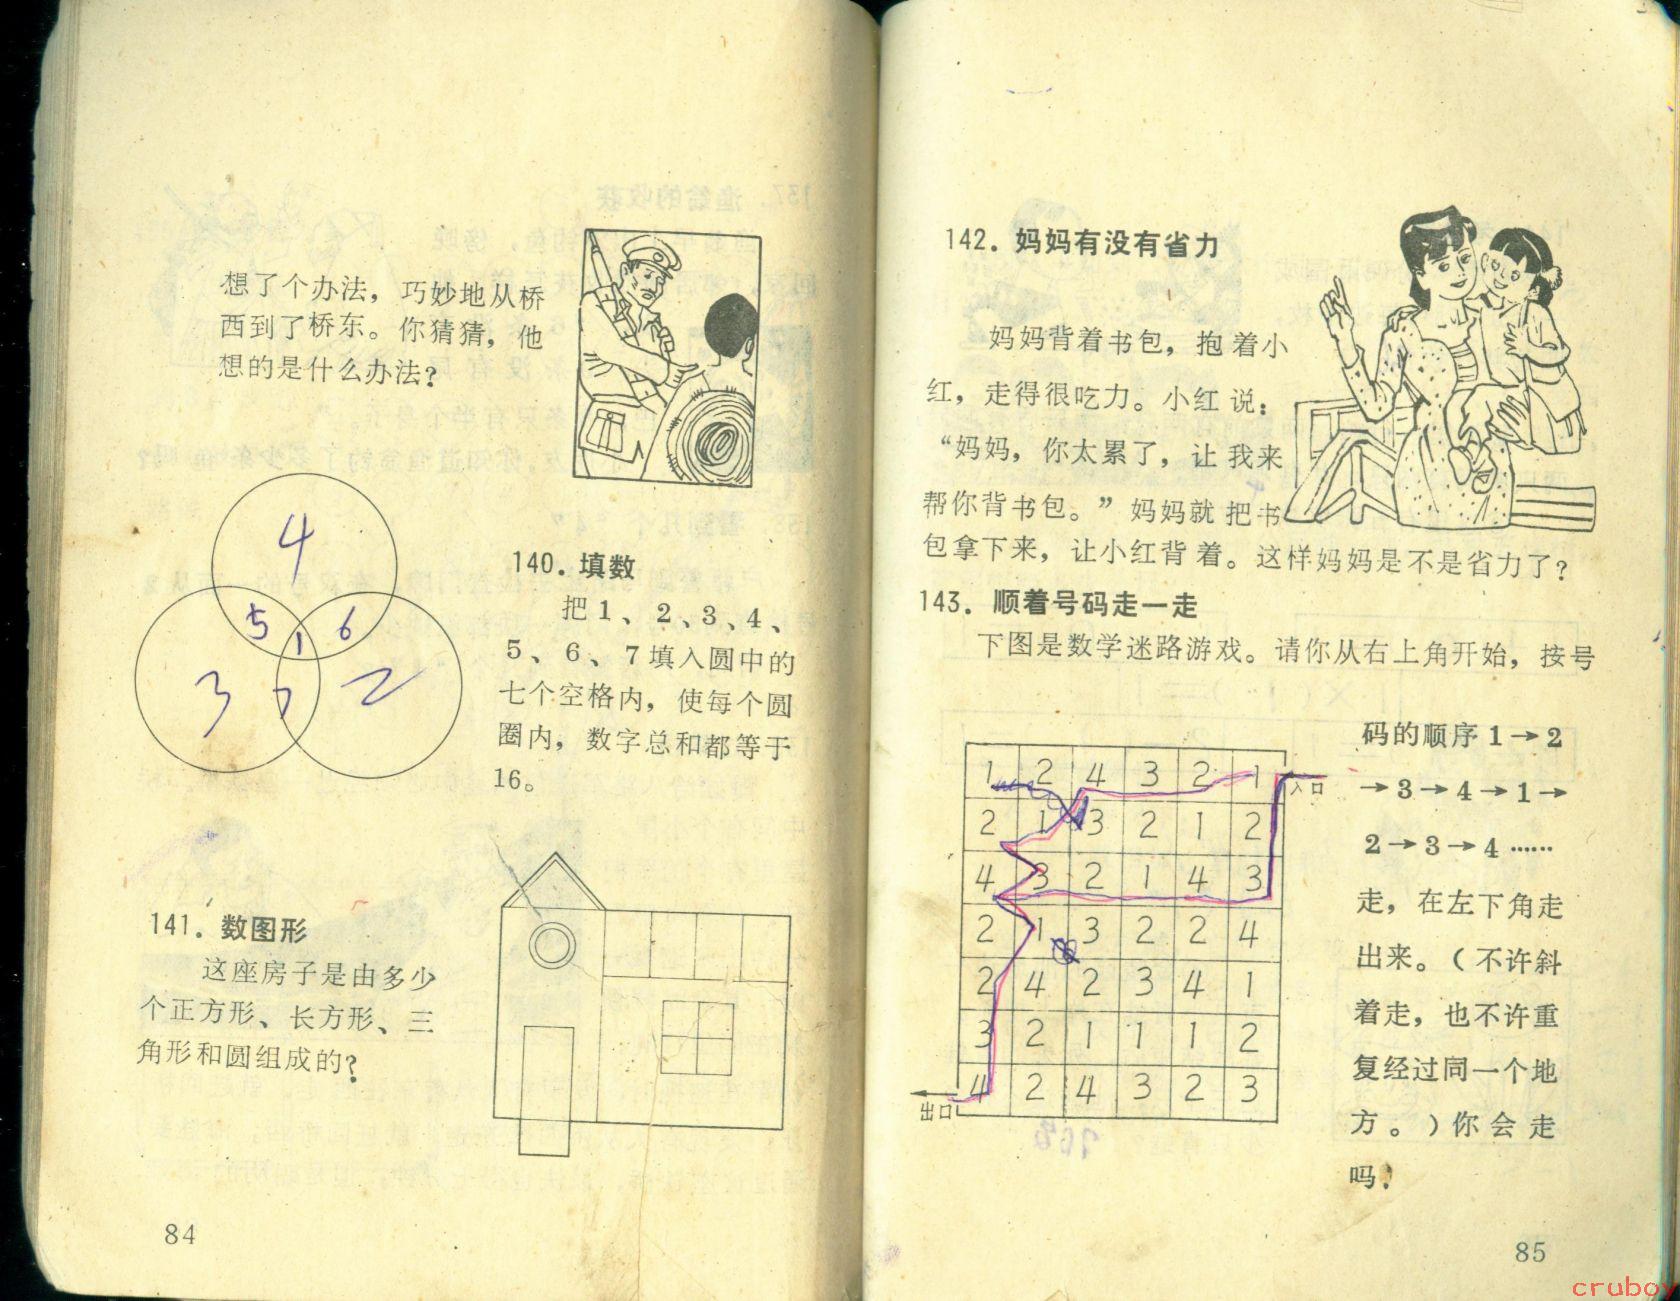 想了个办法，巧妙地从桥
西到了桥东。你猜猜，他
想的是什么办法？
4
5
6
1
3
7
2
140．填数
把1、2、3、4、
5、6、7填入圆中的
七个空格内，使每个圆
圈内，数字总和都等于
16。
141．数图形
这座房子是由多少
个正方形、长方形、三
角形和圆组成的？
84
142．妈妈有没有省力
妈妈背着书包，抱着小
红，走得很吃力。小红说：
“妈妈，你太累了，让我来
帮你背书包。”妈妈就把书
包拿下来，让小红背着。这样妈妈是不是省力了？
143．顺着号码走一走
下图是数学迷路游戏。请你从右上角开始，按号
码的顺序1→2
→3→4→1→
2→3→4……
走，在左下角走
出来。（不许斜
着走，也不许重
复经过同一个地
方。）你会走
吗？
1 2 4 3 2 1 入口
2 1 3 2 1 2
4 3 2 1 4 3
2 1 3 2 2 4
2 4 2 3 4 1
3 2 1 1 1 2
4 2 4 3 2 3
出口
85
cruboy